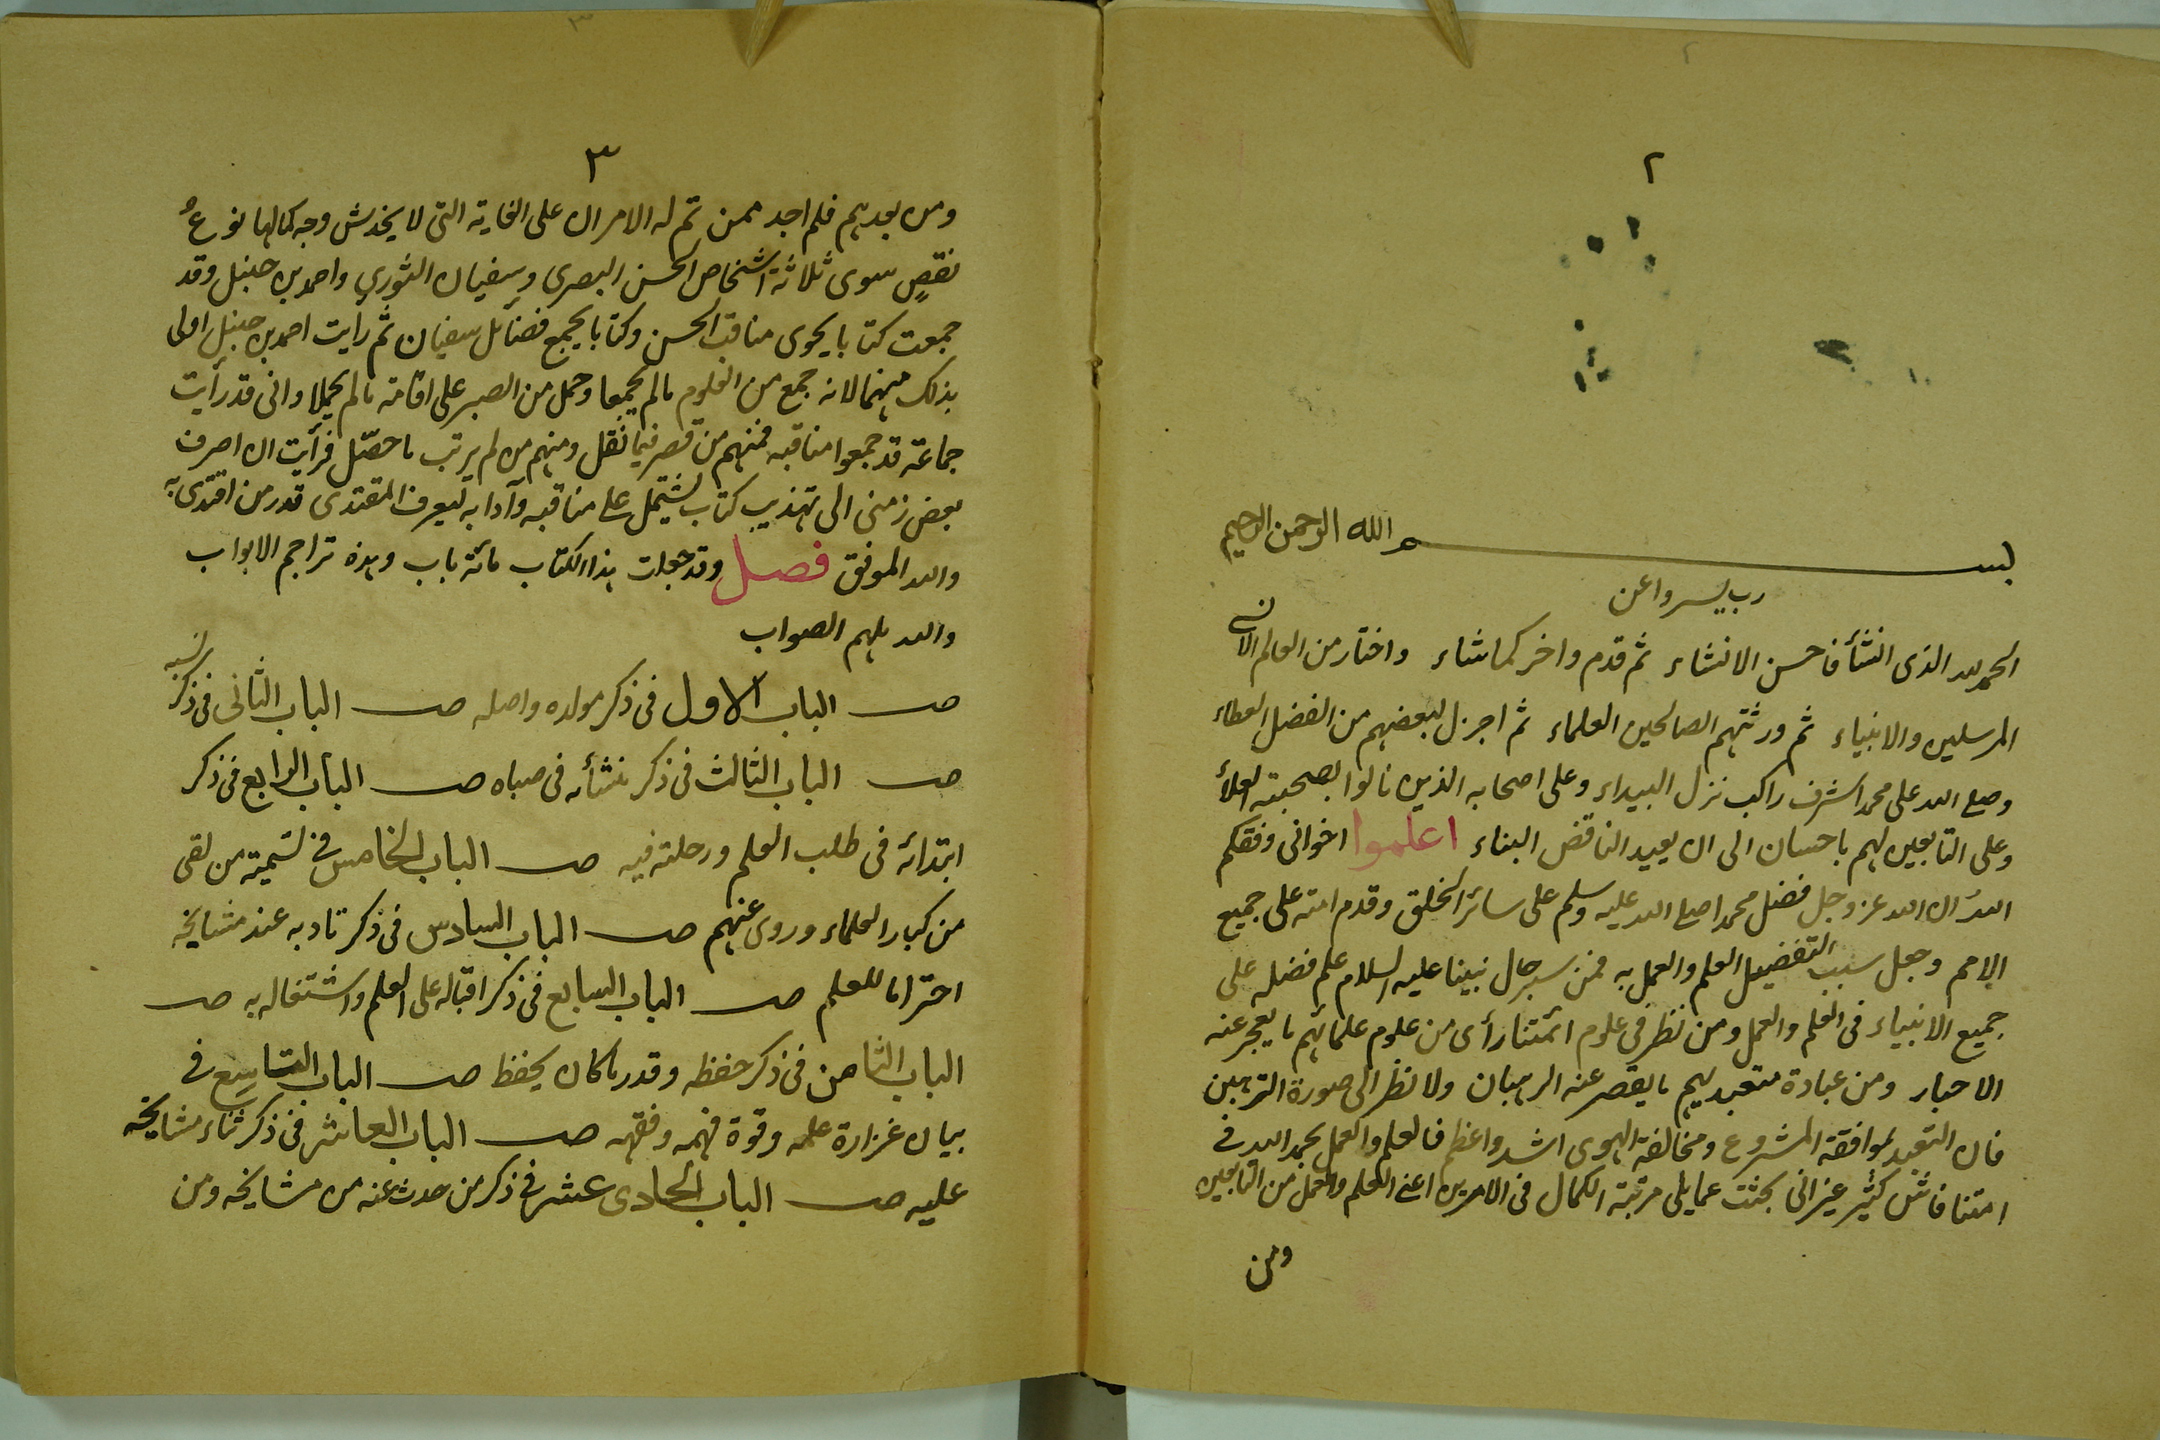 ٢
بسم الله الرحمن الرحيم
رب يسر واعن
الحمد لله الذى انشأ فاحسن الانشاء ثم قدم واخر كما شاء واختار من العالم الانى
المرسلين والانبياء ثم ورثتهم الصالحين العلماء ثم اجزل لبعضهم من الفضل العطاء
وصلى الله على محمد اشرف راكب نزل البيداء وعلى اصحابه الذين نالوا بصحبته العلاء
وعلى التابعين لهم باحسان الى ان يعيد الناقض البناء اعلموا اخوانى وفقكم
الله ان الله عز وجل فضل محمدا صلى الله عليه وسلم على سائر الخلق وقدم امته على جميع
الامم وجعل سبب التفضيل العلم والعمل به فمن سبر حال نبينا عليه السلام علم فضله على
جميع الانبياء فى العلم والعمل ومن نظر فى علوم ائمتنا رأى من علوم علمائهم ما يعجز عنه
الاحبار ومن عبادة متعبديهم ما يقصر عنه الرهبان ولا نظر الى صورة الترهبن
فان التعبد لموافقة المشروع ومخالفة الهوى اشد واعظم فالعلم والعمل بحمد الله فى
امتنا فاش كثير غير انى بحثت عما يلى مرتبة الكمال فى الامرين اعنى العلم والعمل من التابعين
ومن
٣
ومن بعدهم فلم اجد ممن تم له الامران على الغاية التى لا يخدش وجه كمالها نوعُ
نقصٍ سوى ثلاثة اشخاص الحسن البصرى وسفيان الثورى واحمد بن حنبل وقد
جمعت كتابا يحوى مناقب الحسن وكتابا يجمع فضائل سفيان ثم رأيت احمد بن حنبل اولى
بذلك منهما لانه جمع من العلوم ما لم يجمعا وحمل من الصبر على اقامة ما لم يحملا وانى قد رأيت
جماعة قد جمعوا مناقبه فمنهم من قصر فيما نقل ومنهم من لم يرتب ما حصّل فرأيت ان اصرف
بعض زمنى الى تهذيب كتاب يشتمل على مناقبه وآدابه ليعرف المقتدى قدر من اقتدى به
والله الموفق فصل وقد جعلت هذا الكتاب مائة باب وهذه تراجم الابواب
والله يلهم الصواب
صـ الباب الاول فى ذكر مولده واصله صـ الباب الثانى فى ذكر نسبه
صـ الباب الثالث فى ذكر منشأه فى صباه صـ الباب الرابع فى ذكر
ابتدائه فى طلب العلم ورحلته فيه صـ الباب الخامس فى تسمية من لقى
من كبار العلماء وروى عنهم صـ الباب السادس فى ذكر تادبه عند مشايخه
احتراما للعلم صـ الباب السابع فى ذكر اقباله على العلم واشتغاله به صـ
الباب الثامن فى ذكر حفظه وقدر ما كان يحفظ صـ الباب التاسع فى
بيان غزارة علمه وقوة فهمه وفقهه صـ الباب العاشر فى ذكر ثناء مشايخه
عليه صـ الباب الحادى عشر فى ذكر من حدث عنه من مشايخه ومن